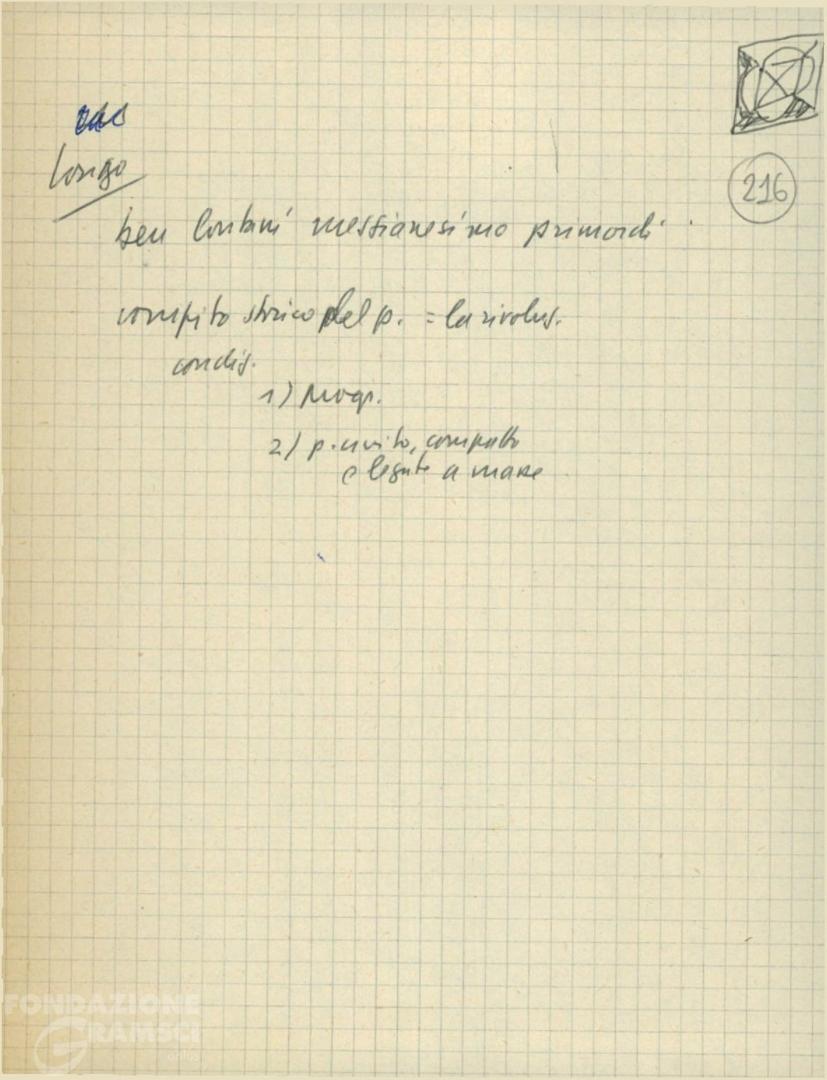 Longo
216
ben lontani messianesimo primordi
compito storico del p. = la rivoluz.
condiz.
1) progr.
2) p. unito, compatto
e legato a masse
FONDAZIONE
GRAMSCI